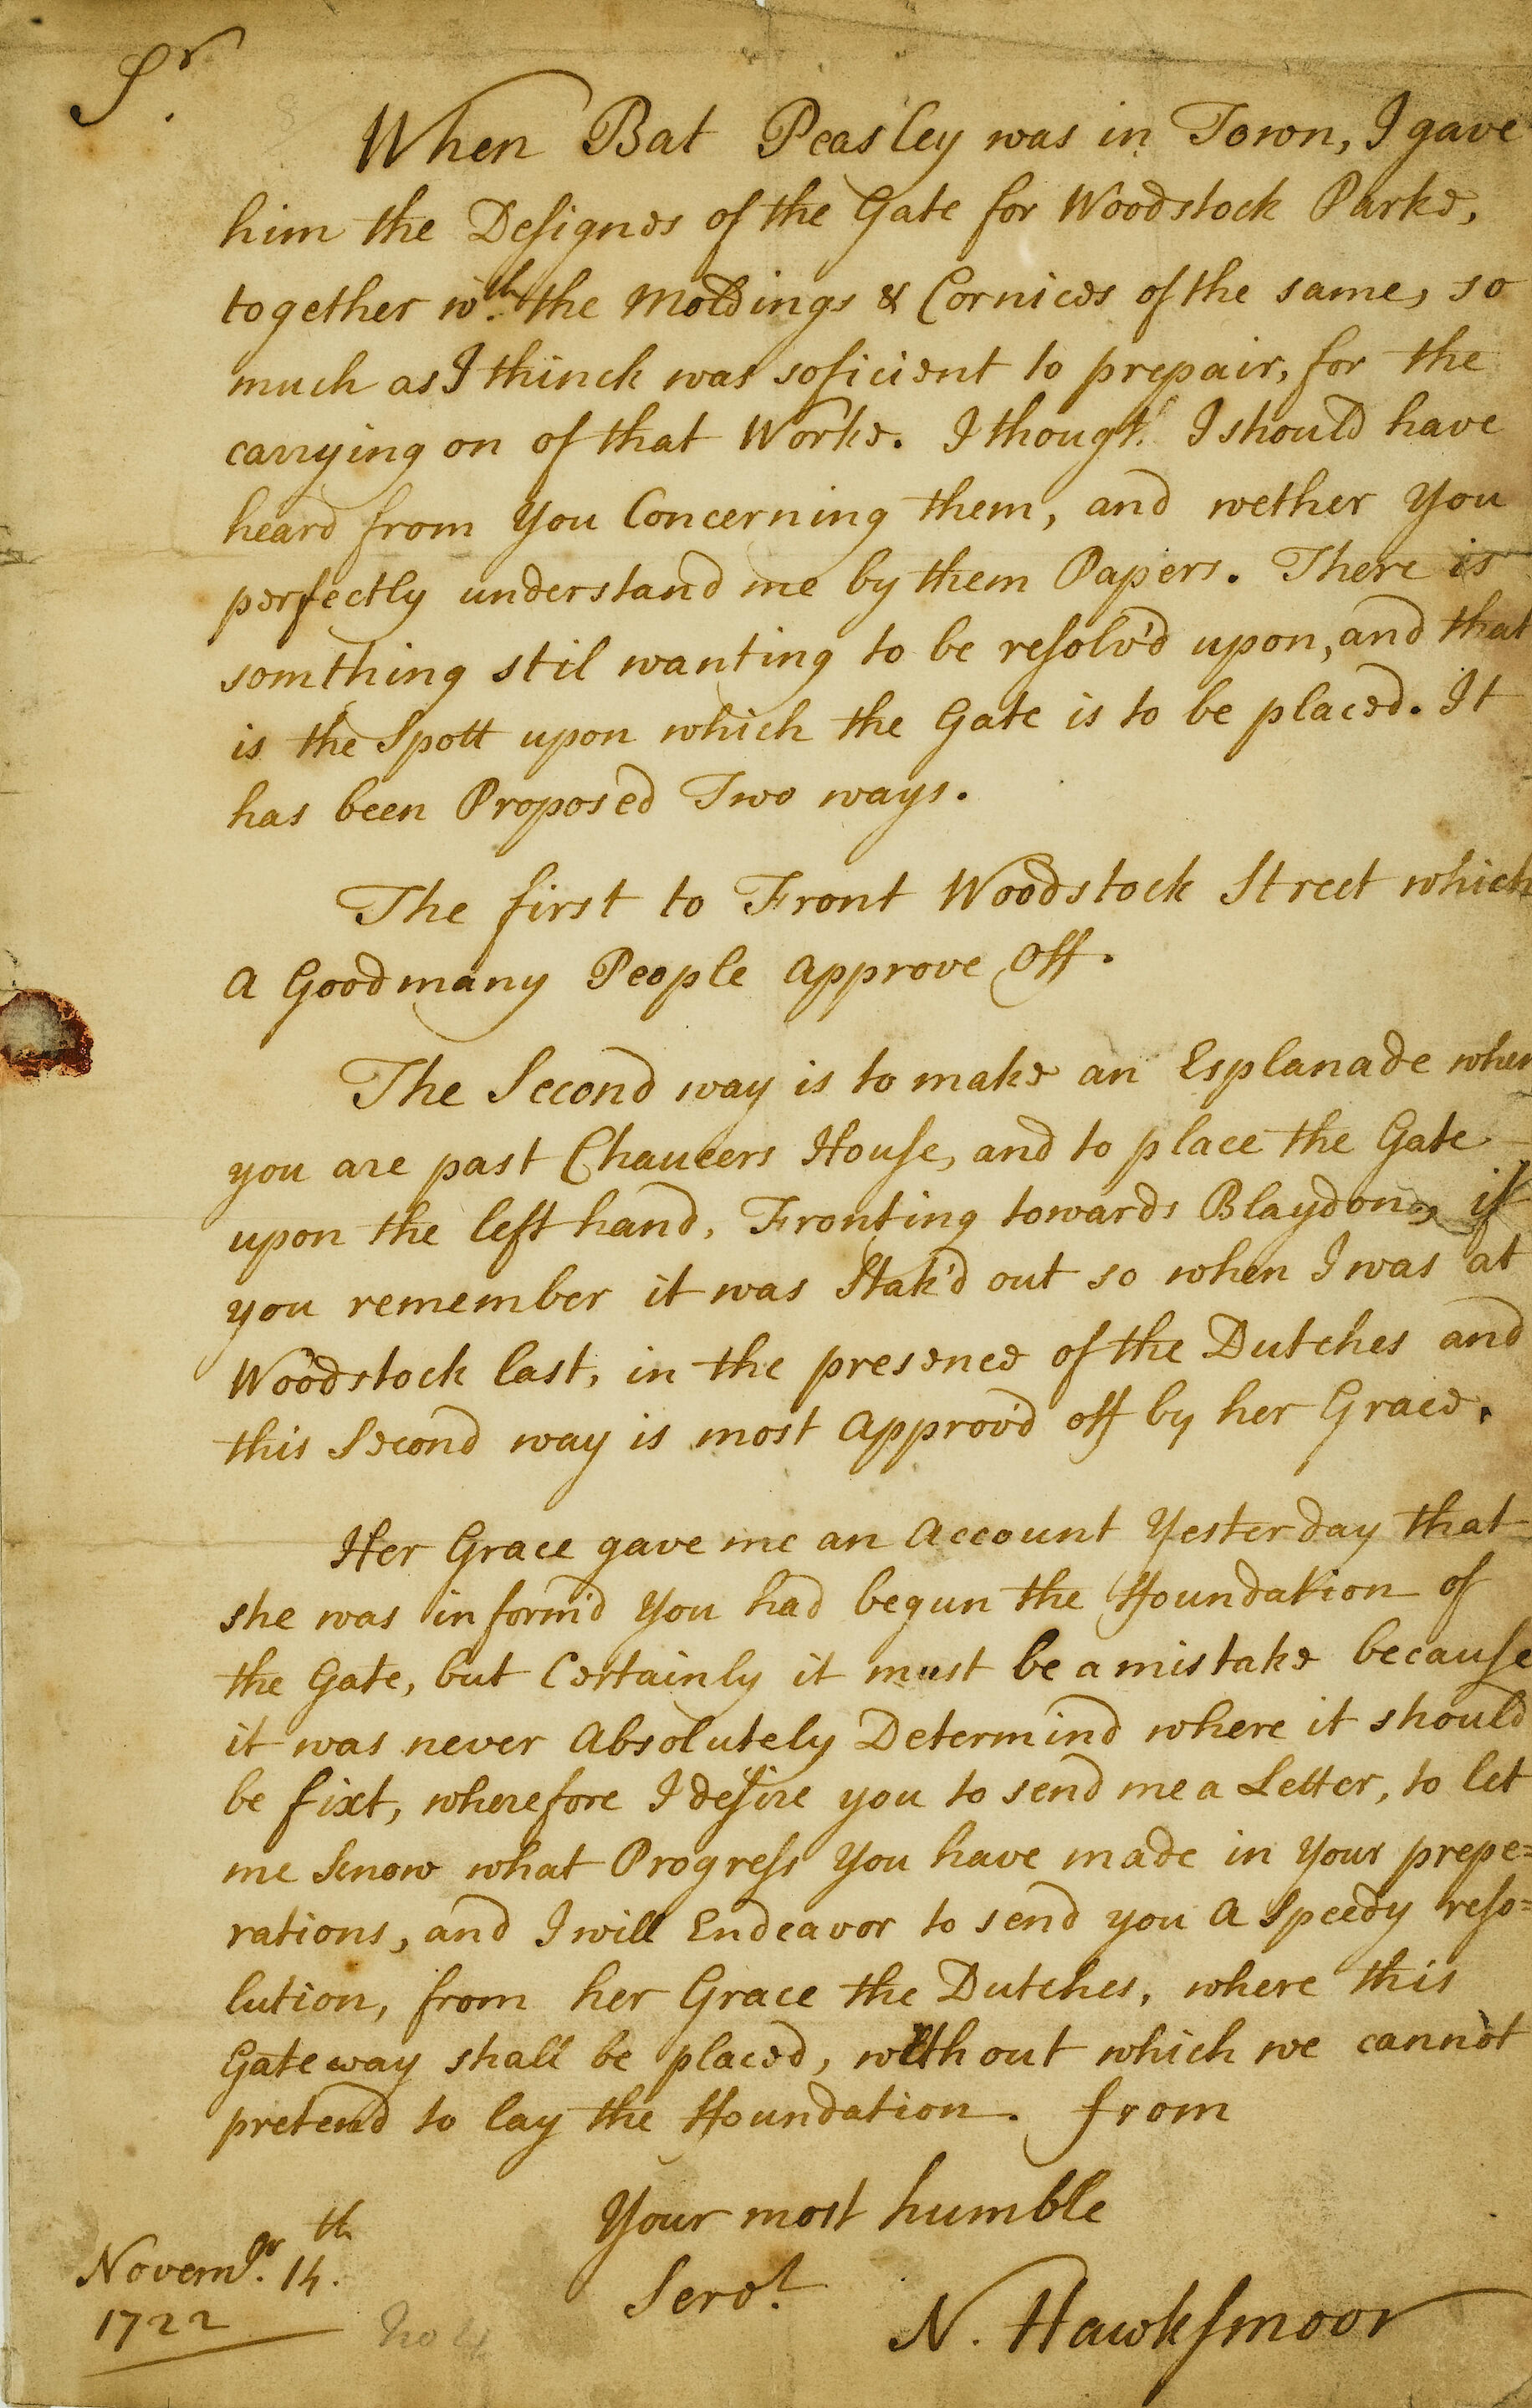 Sr.
When Bat Peasley was in Town, I gave
him the Deſignes of the Gate for Woodstock Parke,
together wth. the Moldings & Cornices of the same, so
much as I thinck was soficient to prepair, for the
carrying on of that Worke. I thougt. I should have
heard from You Concerning them, and wether You
perfectly understand me by them Papers. There is
somthing stil wanting to be reſolv'd upon, and that
is the Spott upon which the Gate is to be placed. It
has been Propos'ed Two ways.
The first to Front Woodstock Street which
A Good many People approve Off.
The Second way is to make an Esplanade when
you are past Chaucers Houſe, and to place the Gate
upon the left hand, Fronting towards Blaydon, if
you remember it was Stak'd out so when I was at
Woodstock last, in the presence of the Dutches and
this Second way is most Approv'd off by her Grace.
Her Grace gave me an Account Yesterday that
she was inform'd You had begun the ffoundation of
the Gate, but Certainly it must be a mistake becauſe
it was never Absolutely Determind where it should
be fixt, wherefore I deſire you to send me a Letter, to let
me know what Progreſs You have made in Your prepe=
rations, and I will Endeavor to send you A Speedy reſo=
lution, from her Grace the Dutches, where this
Gateway shall be placed, without which we cannot
pretend to lay the ffoundation. from
Your most humble
Servt.
N. Hawkſmoor
Novembr. 14th.
1722